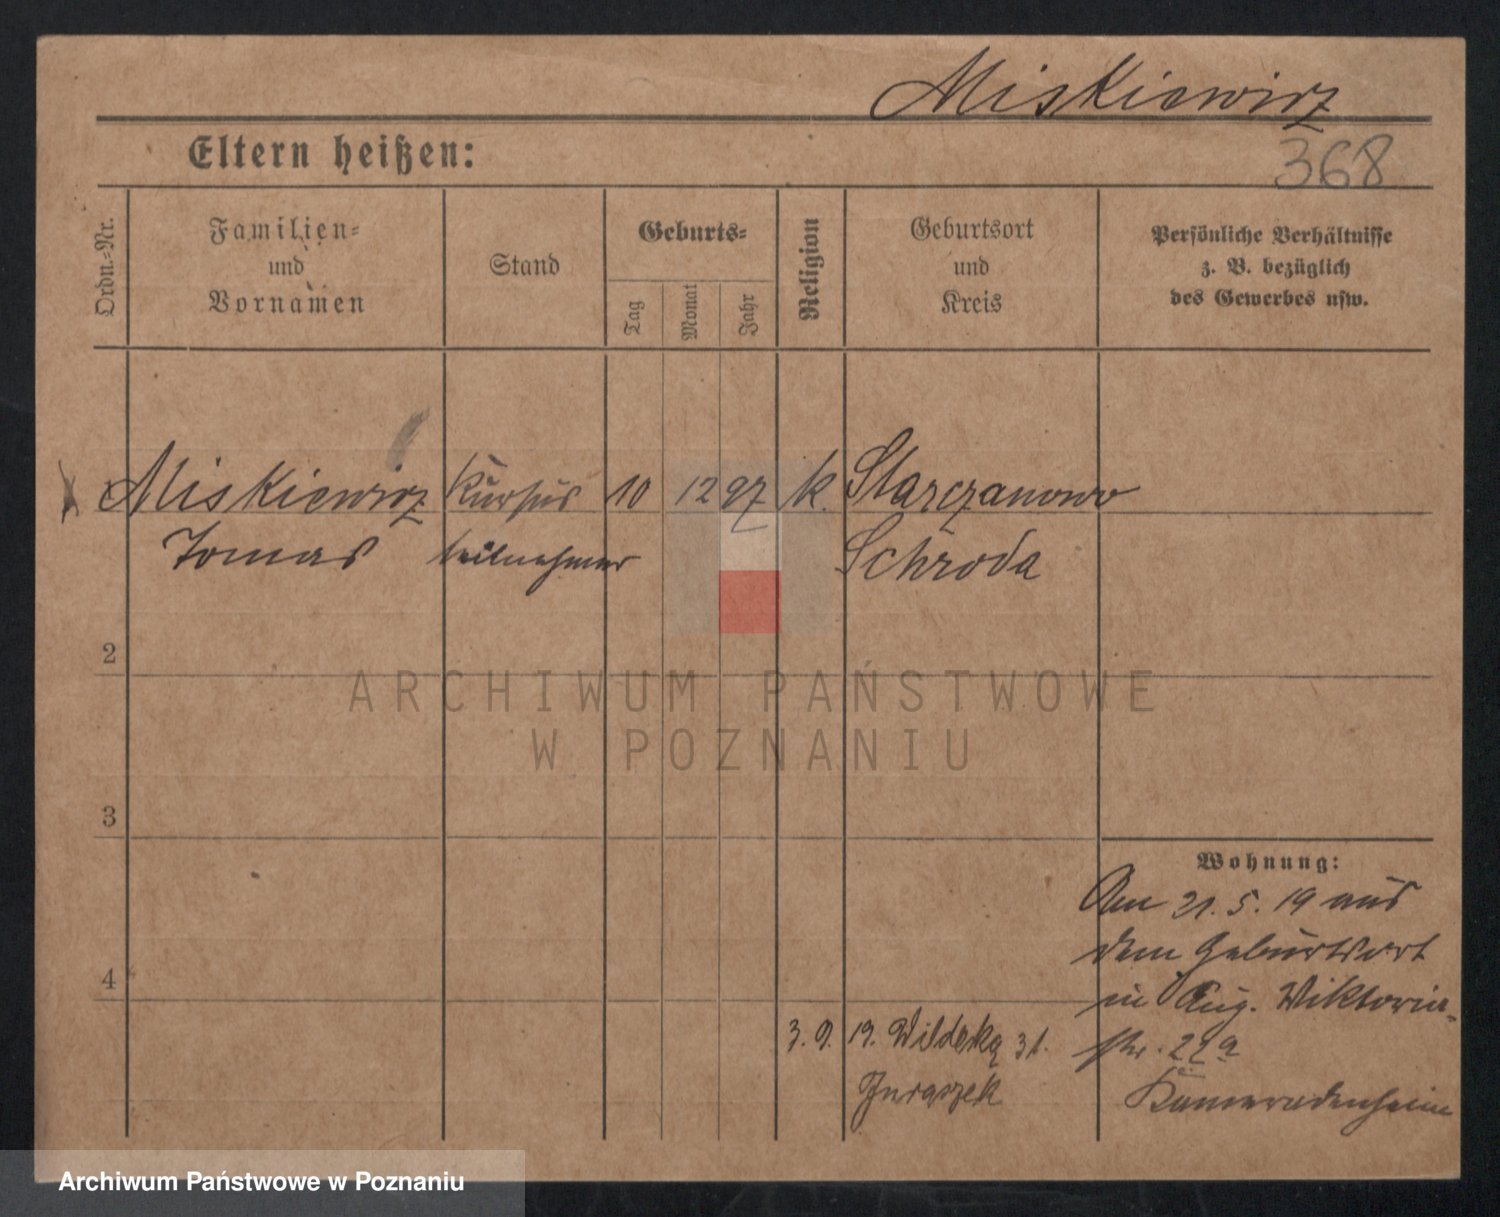 Miskiewicz
Eltern heißen:
368
Ordn.-Nr.
Familien-
und
Vornamen
Stand
Geburts-
Tag
Monat
Jahr
Religion
Geburtsort
und
Kreis
Persönliche Verhältnisse
z. B. bezüglich
des Gewerbes usw.
Miskiewicz Kursus 10 12 97 k. Starczanowo
Tomas teilnehmer Schroda
2
ARCHIWUM PAŃSTWOWE
W POZNANIU
3
4
Wohnung:
Am 21. 5. 19 aus
dem Geburtsort
in Aug. Wiktoria-
str. 22a
Kameradenheim
3. 9. 19. Wildeką 31.
Juraszek
Archiwum Państwowe w Poznaniu